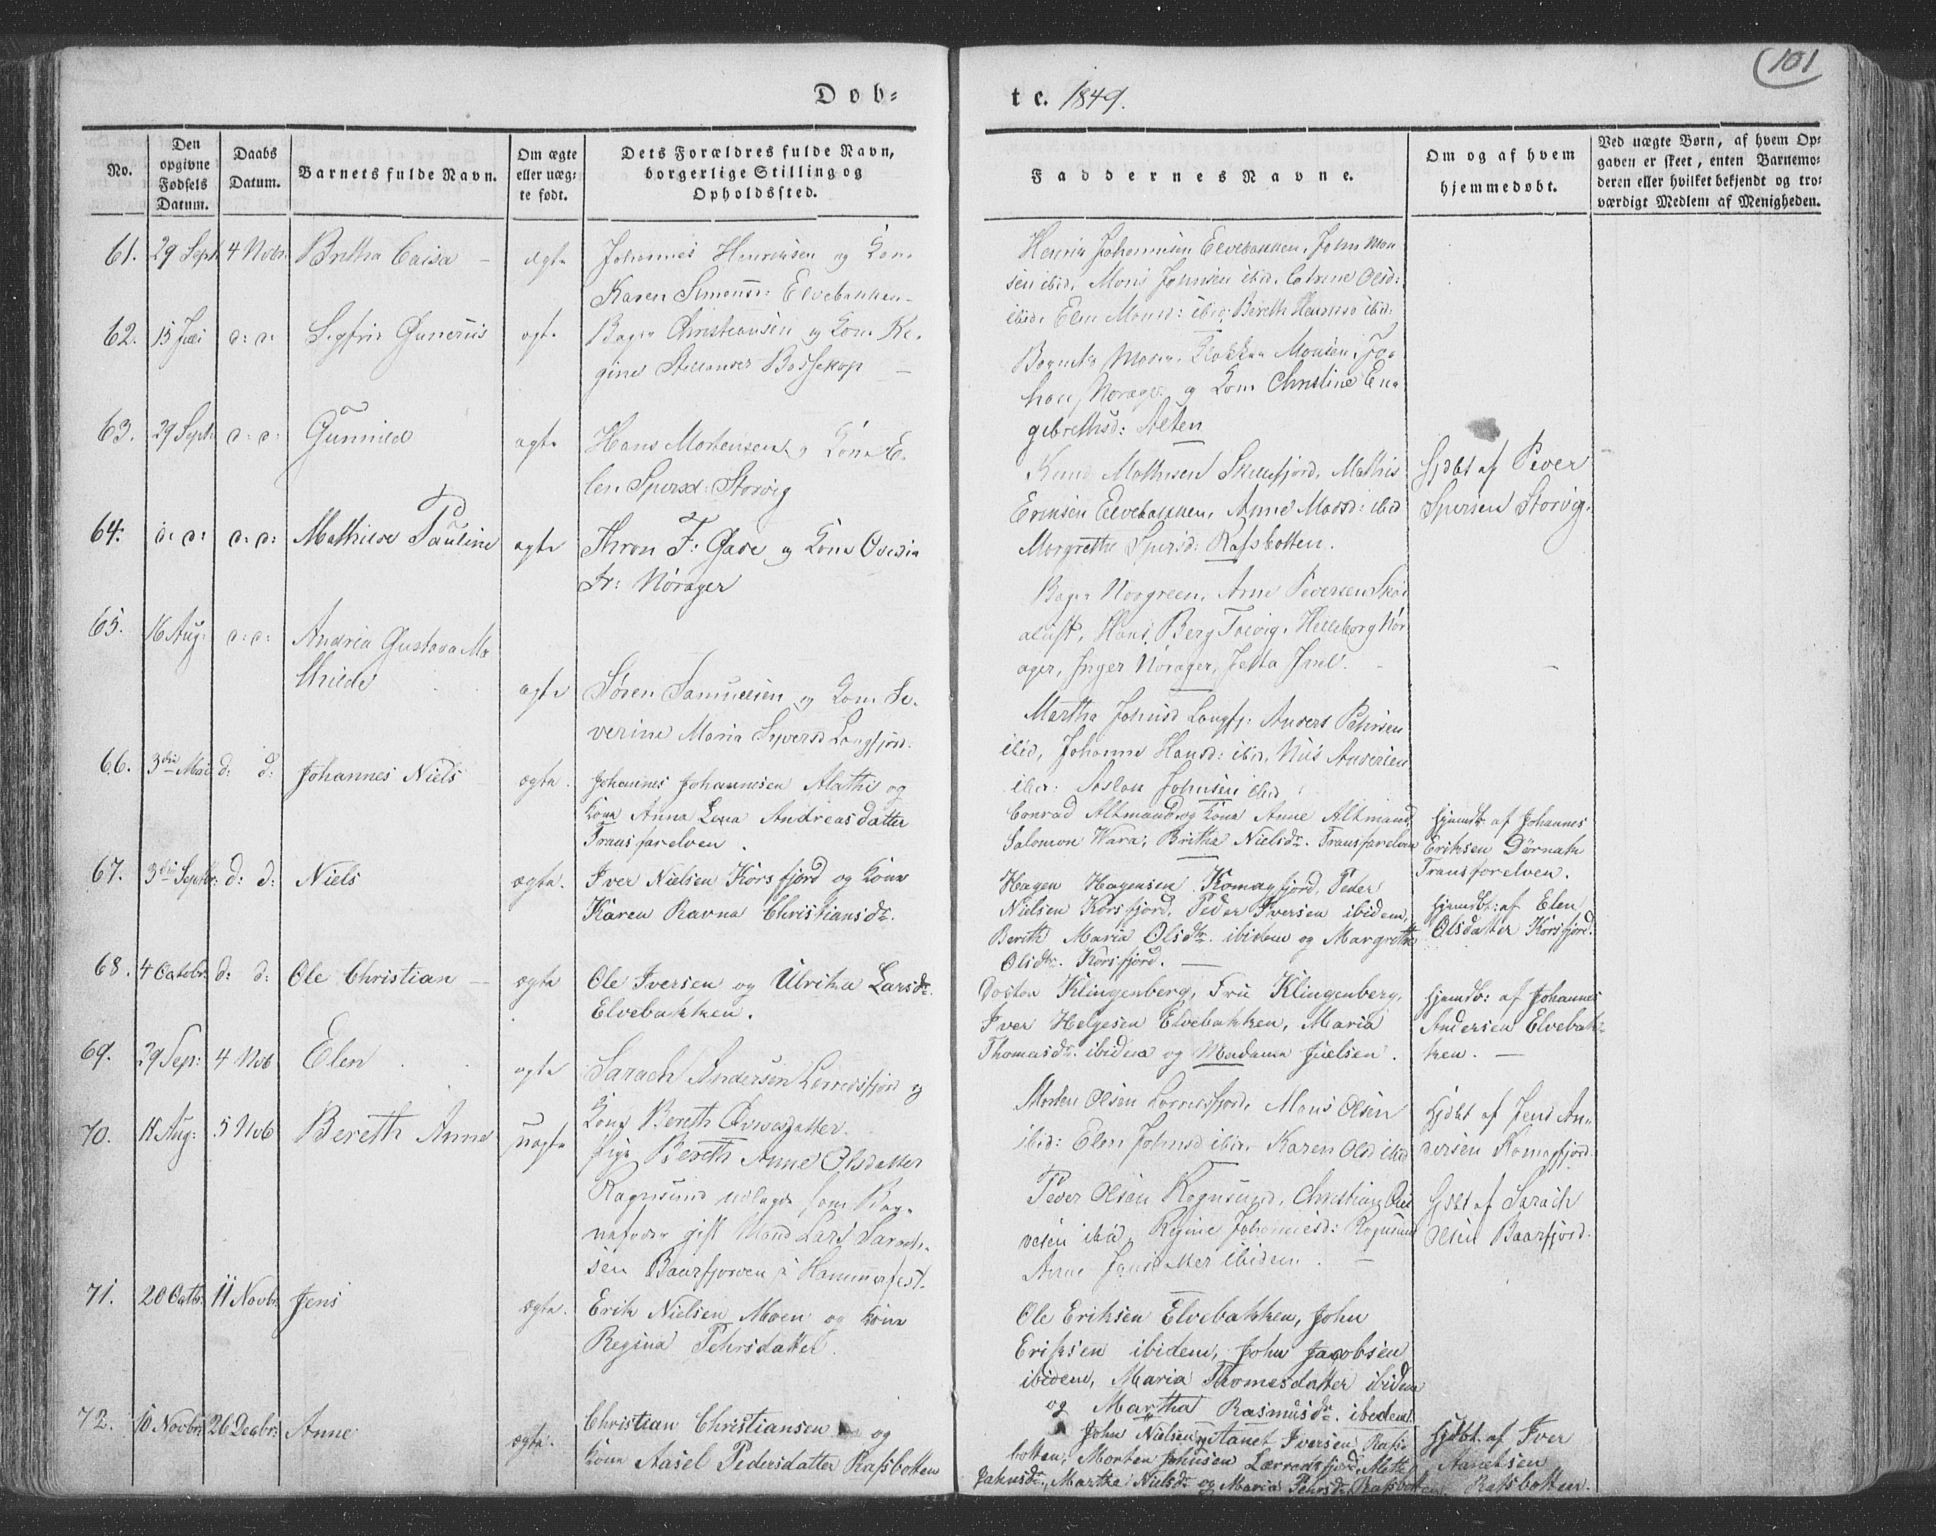 101
Dob-
te. 1849.
No.
Den opgivne Fødsels Datum.
Daabs Datum.
Barnets fulde Navn.
Om ægte eller uægte født.
Dets Forældres fulde Navn, borgerlige Stilling og Opholdssted.
Faddernes Navne.
Om og af hvem hjemmedøbt.
Ved uægte Børn, af hvem Opgaven er skeet, enten Barnemoderen eller hvilket bekjendt og troværdigt Medlem af Menigheden.
61. 29 Sept 4 Novbr: Britha Caisa - ægte Johannes Henriksen og Kone
Karen Simonsd: Elvebakken -
Henrik Johannesen Elvebakken, John Mon
sen ibid, Mons Johnsen ibid, Catrine Olsd:
ibid, Elen Monsd: ibid, Bereth Henriksd ibid:
62. 15 Juli d: d: Sigfrid Gunerius ægte Bager Christiansen og Kone Re-
gine Bossekop -
Monsen,
Norager og Kone Christine En-
gebrethsd: Alten
63. 29 Sept: d: d: Gunnild ægte Hans Mortensen og Kone E-
len Spersd: Storvig
Knud Mathisen Skillefjord, Mathis
Eriksen Elvebakken, Anne Madsd: ibid
Margrethe Spersd: Rafsbotten.
Hjdbt af Peder
Spersen Storvig.
64. d: d: d: d: Mathilde Pauline ægte Thron F: Gade og Kone Ovedia
Fr: Nørager
Bager Norgreen, Arne Pedersen
Hans Berg Talvig, Helleborg Nør-
ager, Inger Nørager, Jetta Juul. -
65. 16 Aug: d: d: Andrea Gustava Ma
thilde
ægte Søren Samuelsen og Kone Se-
verine Maria Syversd Langfjord.
Martha Johnsd Langfj: Anders Pehrsen
ibid, Johanne Hansd: ibid, Nils Andersen
ibid: Aslan Johnsen ibid
66. 3die Mai d: d: Johannes Niels ægte Johannes Johannesen Alathi og
Kone Anna Lena Andreasdatter
Transfarelven.
Conrad Altmand og Kone Anne Altmand,
Salomon Wara, Britha Nielsdr. Transfarelven
Hjemdbt af Johannes
Eriksen Dørnath
Transfarelven.
67. 3die Septbr: d: d: Niels ægte. Iver Nielsen Korsfjord og Kone
Karen Ravna Christiansdr.
Hagen Hagensen Komagfjord, Peder
Nielsen Korsfjord, Peder Iversen ibidem,
Berith Maria Olsdtr. ibidem og Margrethe
Olsdtr. Korsfjord. -
Hjemdbt: af Elen
Olsdatter Korsfjord:
68. 4 Octobr: d: d: Ole Christian - ægte Ole Iversen og Ulrika Larsdr.
Elvebakken.
Doctor Klingenberg, Frue Klingenberg,
Iver Helgesen Elvebakken, Maria
Thomasdr. ibidem og Madame Juelsen.
Hjemdb: af Johannes
Andersen Elvebak-
ken. -
69. 29 Sep: 4 Nvb Elen ægte Sarach Andersen Lerredsfjord og
Kone Bereth
Morten Olsen Lerredsfjord, Mons Olsen
ibid: Elen Johnsd ibid, Karen Olsd ibid
Hjdbt af Jens An-
dersen Komagfjord:
70. 11 Aug: 5 Nvb Bereth Anne uægte Pige Bereth Anne Olsdatter
Rognsund udlagde som Bar-
nefader gift Mand Lars Sarach-
sen Baarfjorden i Hammerfest.
Peder Olsen Rognsund, Christian
ibid, Regine Johannesd: Rognsund
Anne ibidem. -
Hjdbt af Sarach
Olsen Baarfjord.
71. 20 Octbr: 11 Novbr: Jens ægte. Erik Nielsen Moen og Kone
Regina Pehrsdatter.
Ole Eriksen Elvebakken, John
Eriksen ibidem, John Jacobsen
ibidem, Maria Thomesdatter ibidem
og Martha Rasmusdr. ibidem.
72. 10 Novbr: 26 Decbr: Anne ægte. Christian Christiansen og
Kone Aasel Pedersdatter Rafsbotten
John Nielsen, Aanet Iversen Rafs-
botten, Morten Johnsen Lerredsfjord, Mette
Jahnsdr., Martha Nielsdr og Maria Pehrsdr. Rafsbotten
Hjdbt. af Iver
Aanetsen
Rafsbotten.